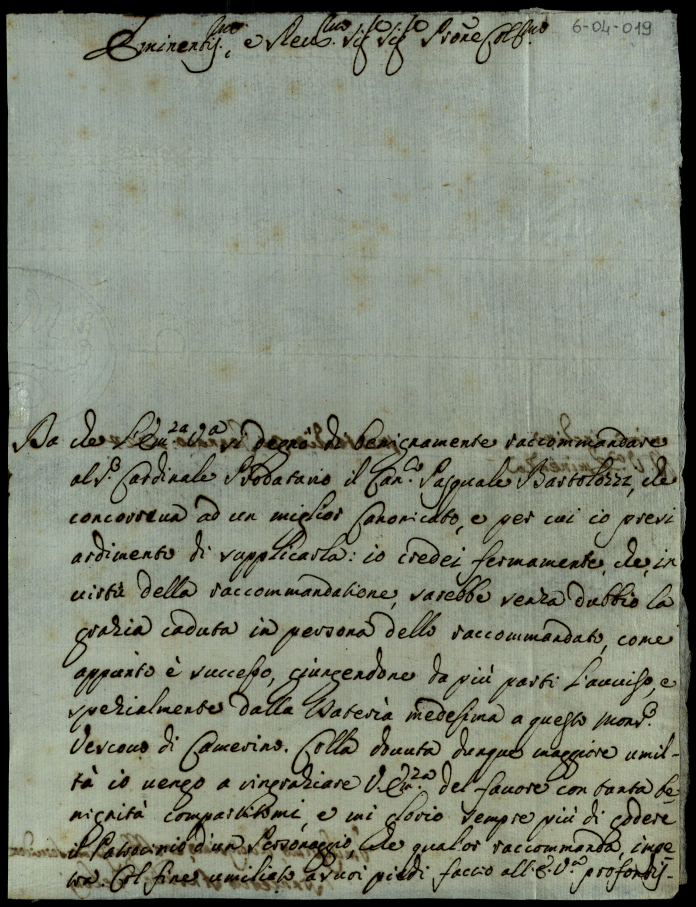 6-04-019
Eminentis.mo, e Reu.mo Sig.re Sig.re Prōne Col.mo
Da che l'Em.za V.a si degnò di benignamente raccommandare
al S.r Cardinale Prodatario il Can.co Pasquale Bartolozzi, che
concorreua ad un miglior Canonicato, e per cui io presi
ardimento di supplicarla: io credei fermamente, che, in
uirtù della raccommandatione, sarebbe senza dubbio la
grazia caduta in persona dello raccommandato, come
appunto è successo, giungendone da più parti l'auuiso, e
spezialmente dalla Dateria medesima a questo Mons.r
Vescouo di Camerino. Colla douuta dunque maggiore umil-
tà io uengo a ringraziare V. Em.za del fauore con tanta be-
nignità compartitomi, e mi glorio sempre più di godere
il Patrocinio d'un Personaggio, che qualor raccommanda, impe
tra. Col fine umiliato a suoi piedi faccio all'E. V.a profondis-